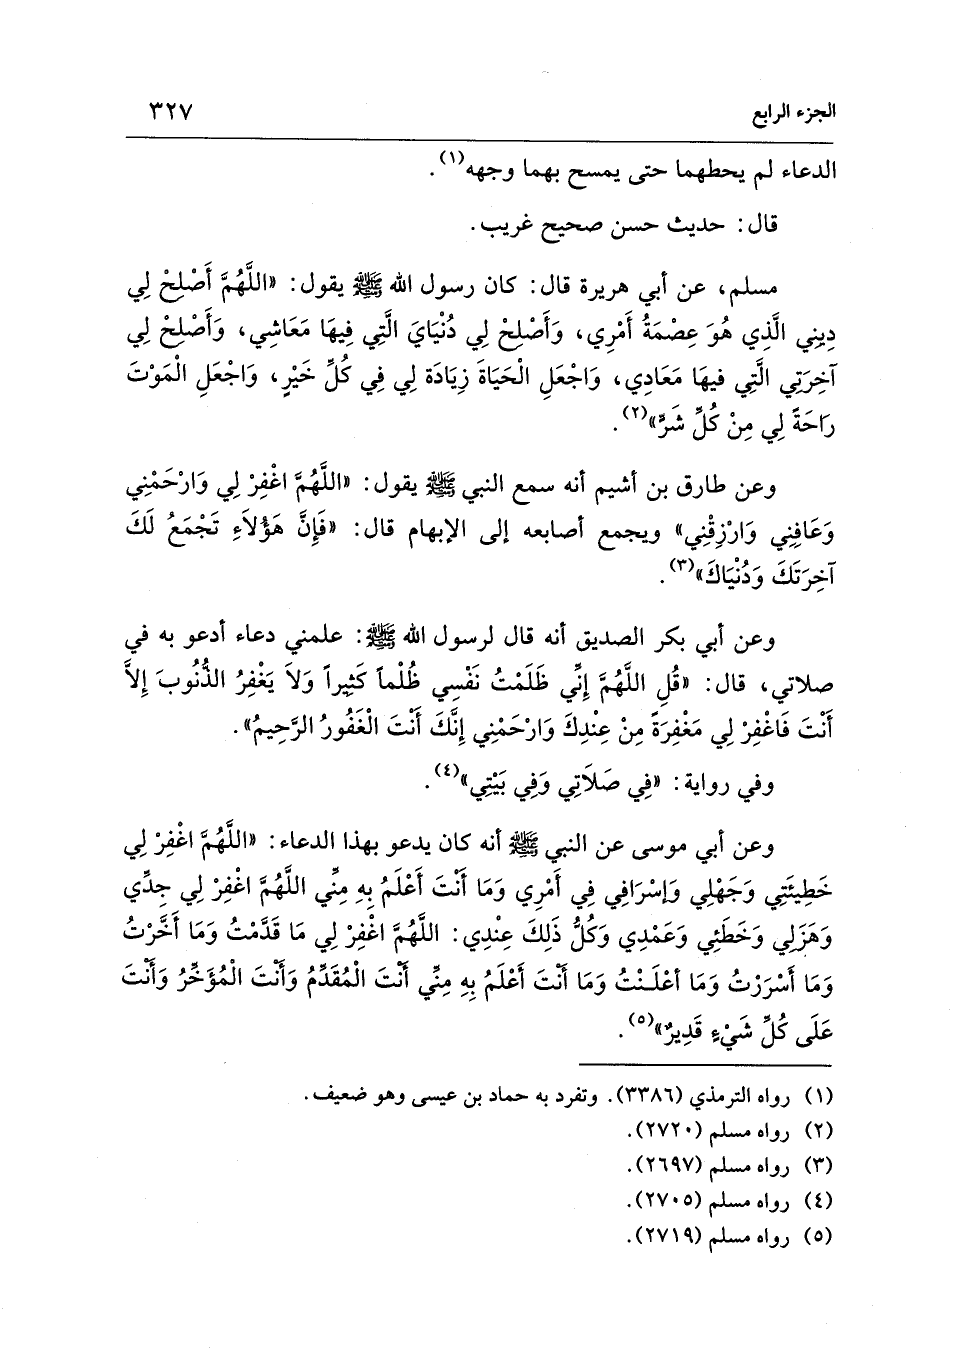 الجزء الرابع ٣٢٧
الدعاء لم يحطهما حتى يمسح بهما وجهه(١).
قال: حديث حسن صحيح غريب.
مسلم، عن أبي هريرة قال: كان رسول الله ﷺ يقول: «اللَّهُمَّ أَصْلِحْ لِي
دِينِي الَّذِي هُوَ عِصْمَةُ أَمْرِي، وَأَصْلِحْ لِي دُنْيَايَ الَّتِي فِيهَا مَعَاشِي، وَأَصْلِحْ لِي
آخِرَتِي الَّتِي فيهَا مَعَادِي، وَاجْعَلِ الْحَيَاةَ زِيَادَة لِي فِي كُلِّ خَيْرٍ، وَاجْعَلِ الْمَوْتَ
رَاحَةً لِي مِنْ كُلِّ شَرٍّ»(٢).
وعن طارق بن أشيم أنه سمع النبي ﷺ يقول: «اللَّهُمَّ اغْفِرْ لِي وَارْحَمْنِي
وَعَافِنِي وَارْزِقْنِي» ويجمع أصابعه إلى الإبهام قال: «فَإِنَّ هَؤُلاَءِ تَجْمَعُ لَكَ
آخِرَتَكَ وَدُنْيَاكَ»(٣).
وعن أبي بكر الصديق أنه قال لرسول الله ﷺ: علمني دعاء أدعو به في
صلاتي، قال: «قُلِ اللَّهُمَّ إِنِّي ظَلَمْتُ نَفْسِي ظُلْماً كَثِيراً وَلاَ يَغْفِرُ الذُّنُوبَ إِلاَّ
أَنْتَ فَاغْفِرْ لِي مَغْفِرَةً مِنْ عِنْدِكَ وَارْحَمْنِي إِنَّكَ أَنْتَ الْغَفُورُ الرَّحِيمُ».
وفي رواية: «فِي صَلَاتِي وَفِي بَيْتِي»(٤).
وعن أبي موسى عن النبي ﷺ أنه كان يدعو بهذا الدعاء: «اللَّهُمَّ اغْفِرْ لِي
خَطِيئَتِي وَجَهْلِي وَإِسْرَافِي فِي أَمْرِي وَمَا أَنْتَ أَعْلَمُ بِهِ مِنِّي اللَّهُمَّ اغْفِرْ لِي جِدِّي
وَهَزَلِي وَخَطَئِي وَعَمْدِي وَكُلُّ ذَلِكَ عِنْدِي: اللَّهُمَّ اغْفِرْ لِي مَا قَدَّمْتُ وَمَا أَخَّرْتُ
وَمَا أَسْرَرْتُ وَمَا أعْلَنْتُ وَمَا أَنْتَ أَعْلَمُ بِهِ مِنِّي أَنْتَ الْمُقَدِّمُ وَأَنْتَ الْمُؤَخِّرُ وَأَنْتَ
عَلَى كُلِّ شَيْءٍ قَدِيرٌ»(٥).
(١) رواه الترمذي (٣٣٨٦). وتفرد به حماد بن عيسى وهو ضعيف.
(٢) رواه مسلم (٢٧٢٠).
(٣) رواه مسلم (٢٦٩٧).
(٤) رواه مسلم (٢٧٠٥).
(٥) رواه مسلم (٢٧١٩).